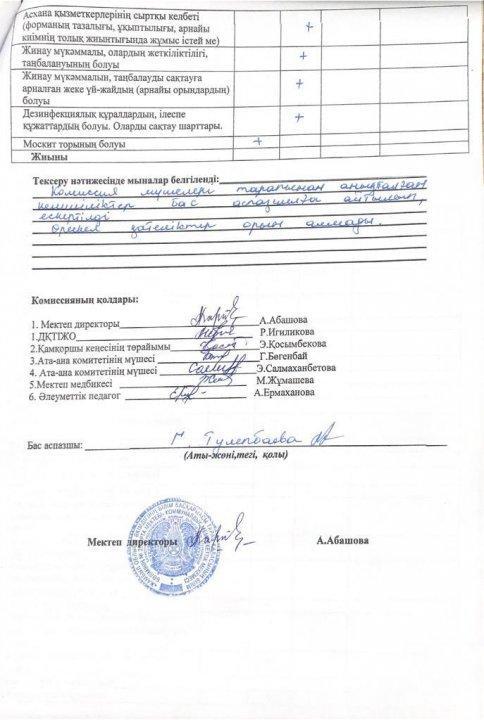 Асхана қызметкерлерінің сыртқы келбеті
(форманың тазалығы, ұқыптылығы, арнайы
киімнің толық жиынтығында жұмыс істей ме)
+
Жинау мүкәммалы, олардың жеткіліктілігі,
таңбалануының болуы
+
Жинау мүкәммалын, таңбалауды сақтауға
арналған жеке үй-жайдың (арнайы орындардың)
болуы
+
Дезинфекциялық құралдардың, ілеспе
құжаттардың болуы. Оларды сақтау шарттары.
+
Москит торының болуы +
Жиыны
Тексеру нәтижесінде мыналар белгіленді:
Комиссия мүшелері тарапынан анықталған
кемшіліктер бас аспазшыға айтылып,
ескертілді
Өрескел қателіктер орын алмады.
Комиссияның қолдары:
1. Мектеп директоры А.Абашова
1.ДҚТІЖО Р.Игиликова
2.Қамқоршы кеңесінің төрайымы Э.Қосымбекова
3.Ата-ана комитетінің мүшесі Г.Бөгенбай
4. Ата-ана комитетінің мүшесі Э.Салмаханбетова
5.Мектеп медбикесі М.Жұмашева
6. Әлеуметтік педагог А.Ермаханова
Бас аспазшы: Г. Тулепбаева
(Аты-жөні,тегі, қолы)
Мектеп директоры А.Абашова